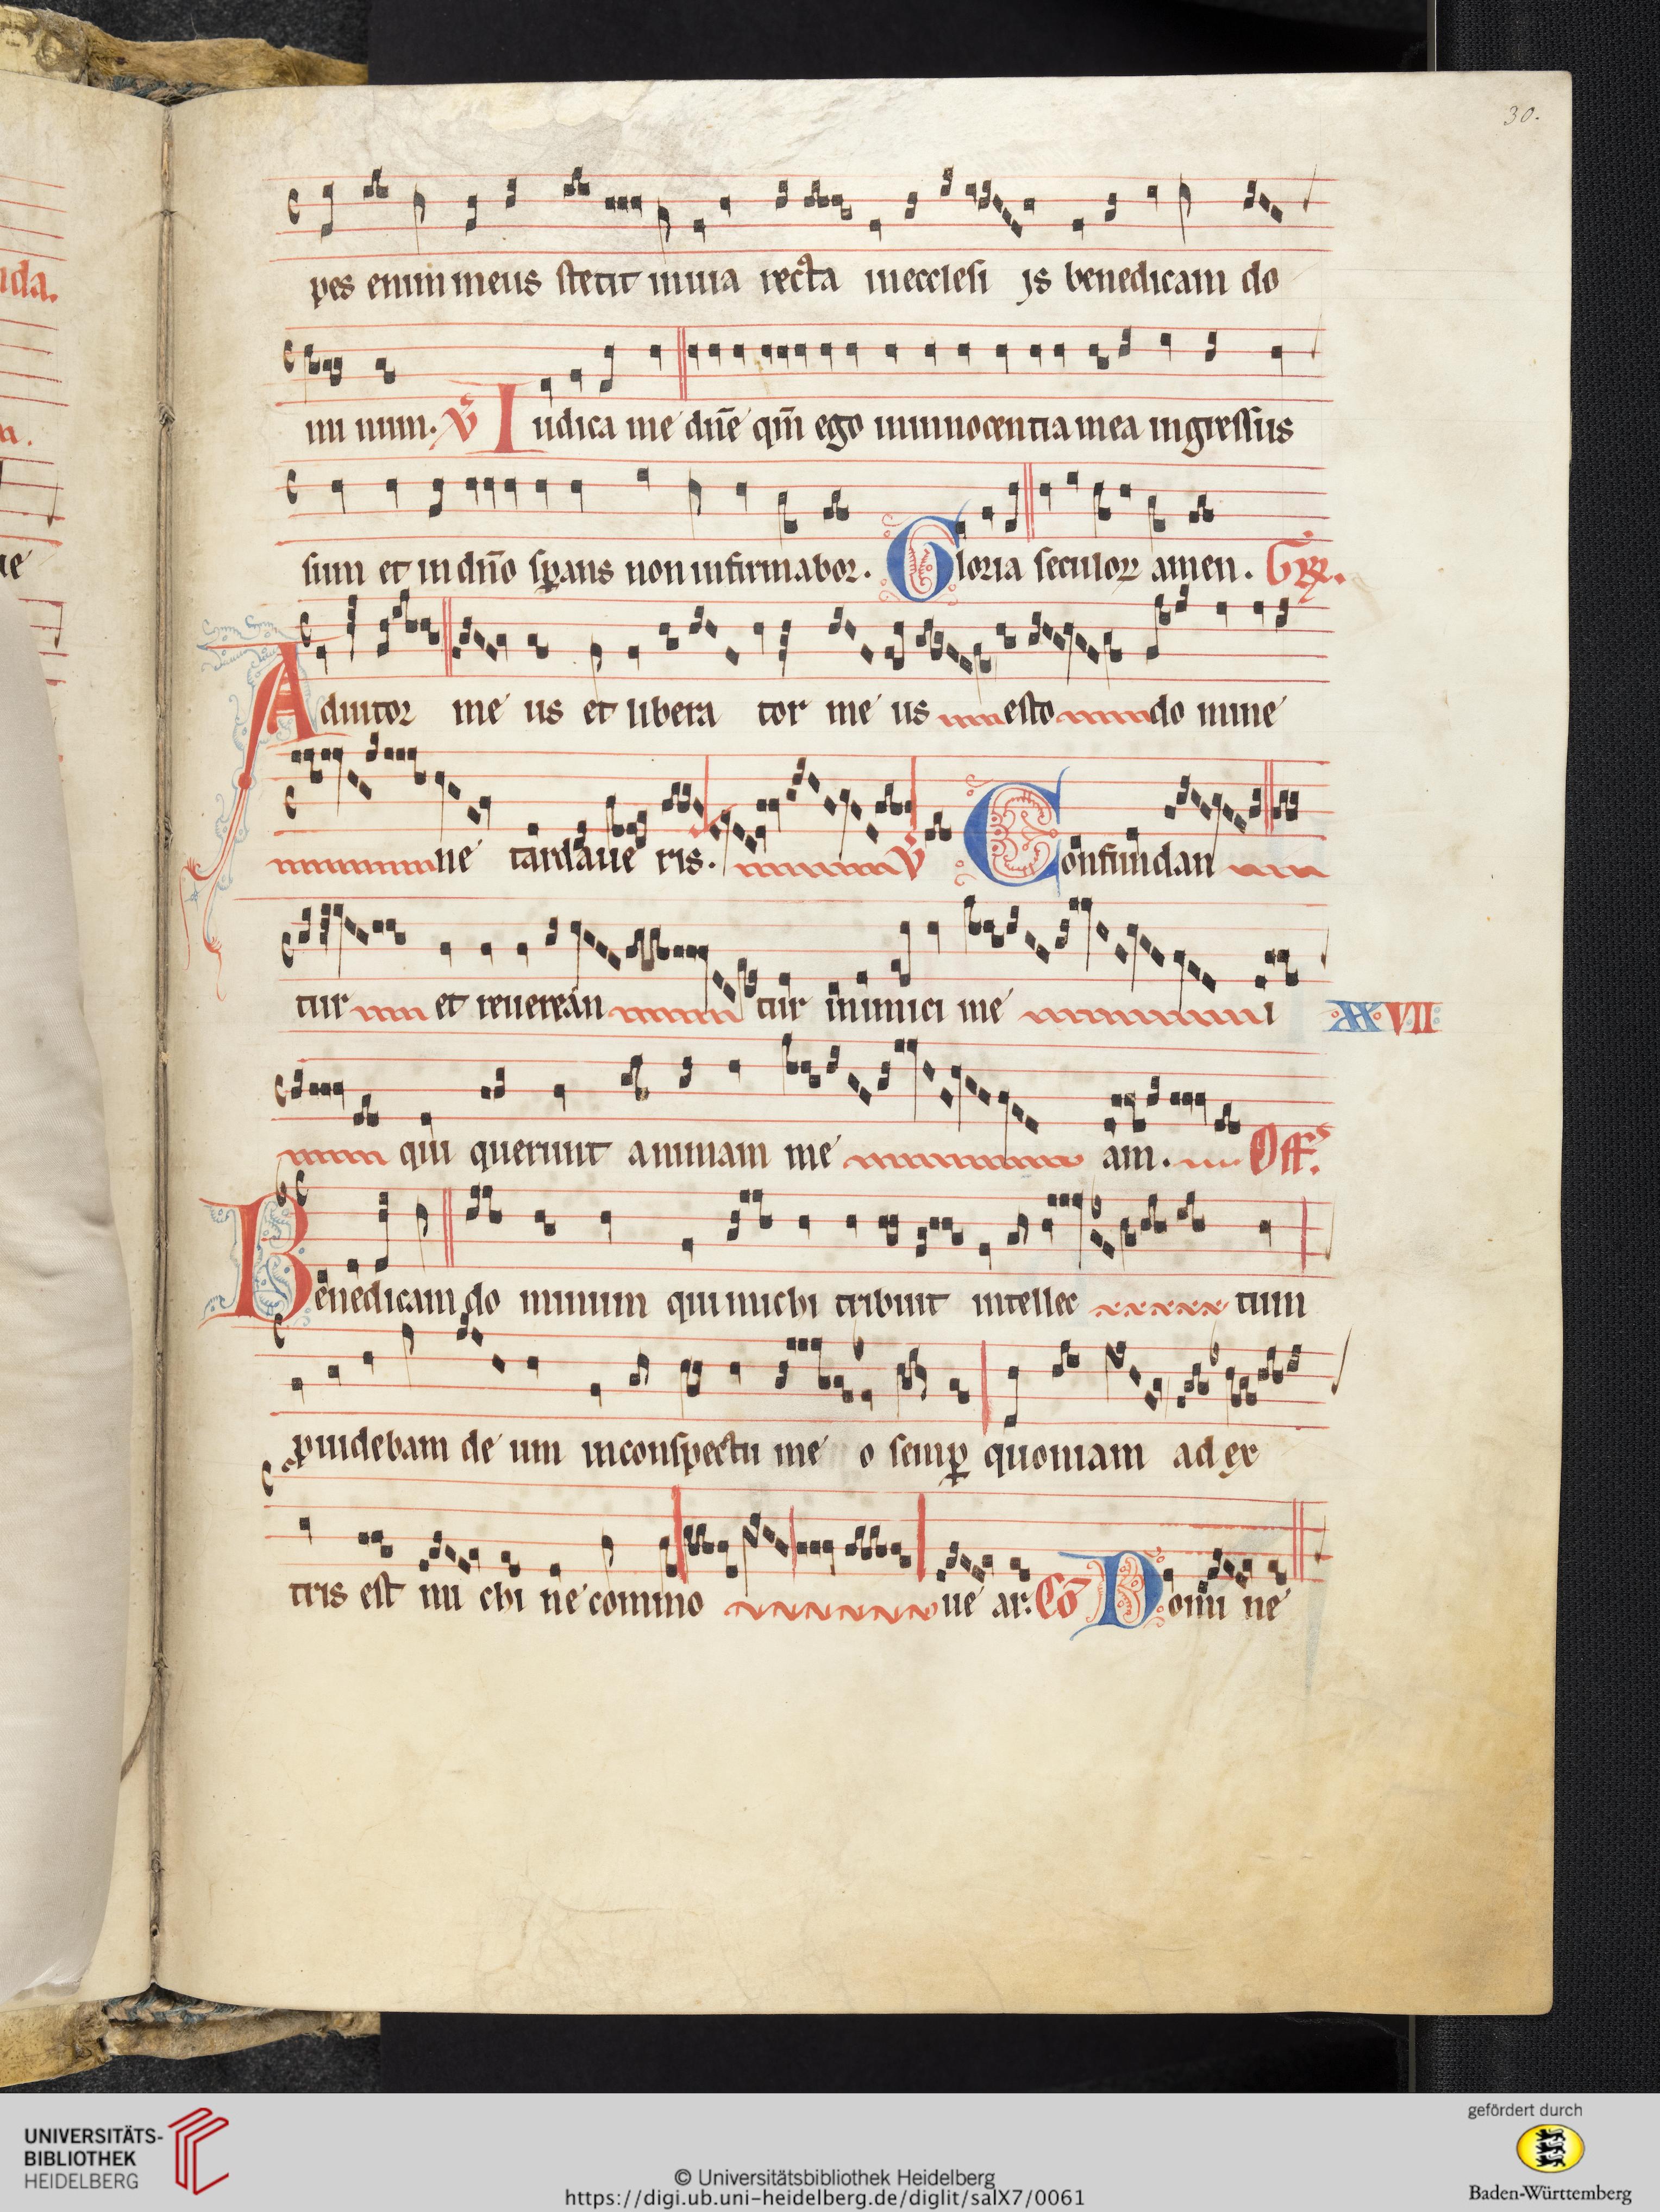 30.
uda.
pes enim meus stetit inuia recta inecclesi is benedicam do
mi num. V Iudica me dn̄e qm̄ ego ininnocentia mea ingressus
sum et in dn̄o sperans non infirmabor. Gloria seculorꝝ amen. Gꝝ.
Adiutor me us et libera tor me us esto do mine
ne tardaue ris. V Confundan
tur et reuerean tur inimici me i XXVII
qui querunt animam me am. Off.
Benedicam do minum qui michi tribuit intellec tum
ꝓuidebam de um inconspectu me o semꝑ quoniam ad ex
tris est mi chi ne commo ue ar. Cō Domi ne
UNIVERSITÄTS-
BIBLIOTHEK
HEIDELBERG
© Universitätsbibliothek Heidelberg
https://digi.ub.uni-heidelberg.de/diglit/salX7/0061
gefördert durch
Baden-Württemberg